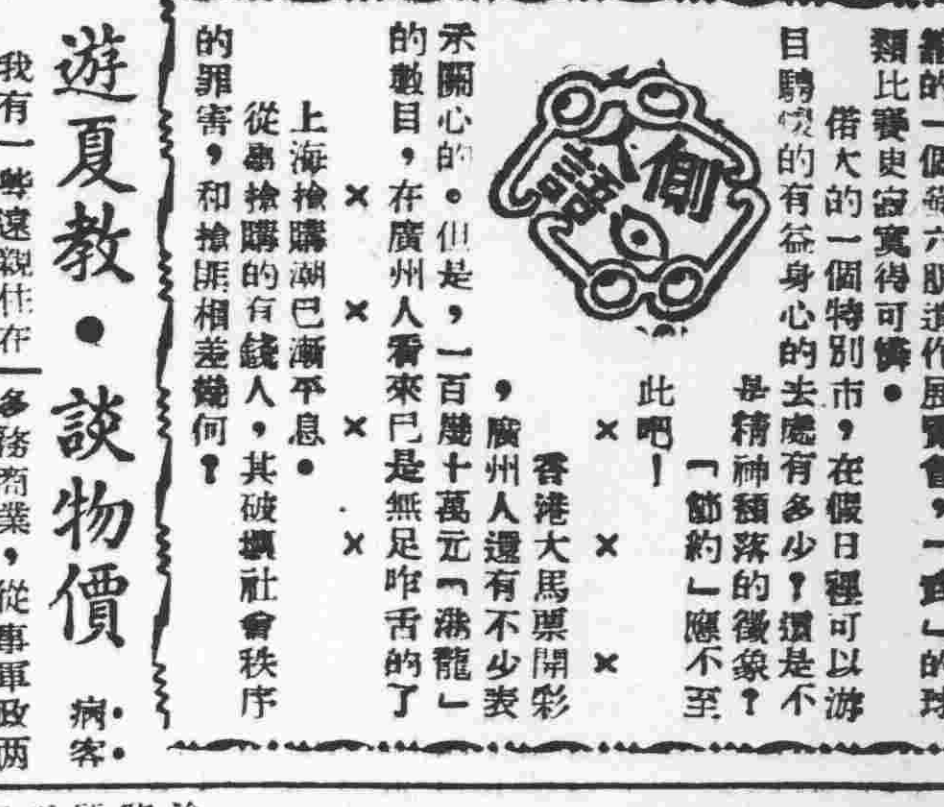 類比賽更寂寞得可憐●
偌大的一個特別市，在假日裡可以游
目騁懷的有益身心的去處有多少？還是不
是精神頹落的徵象？
「節約」應不至
此吧！
×　×　×
香港大馬票開彩
，廣州人還有不少表
示關心的。但是，一百幾十萬元「港龍」
的數目，在廣州人看來已是無足咋舌的了
×　×　×　×
上海搶購潮已漸平息●
從事搶購的有錢人，其破壞社會秩序
的罪害，和搶匪相差幾何？
側人語
遊夏教●談物價
病客
我有一
多務商業，從事軍政两